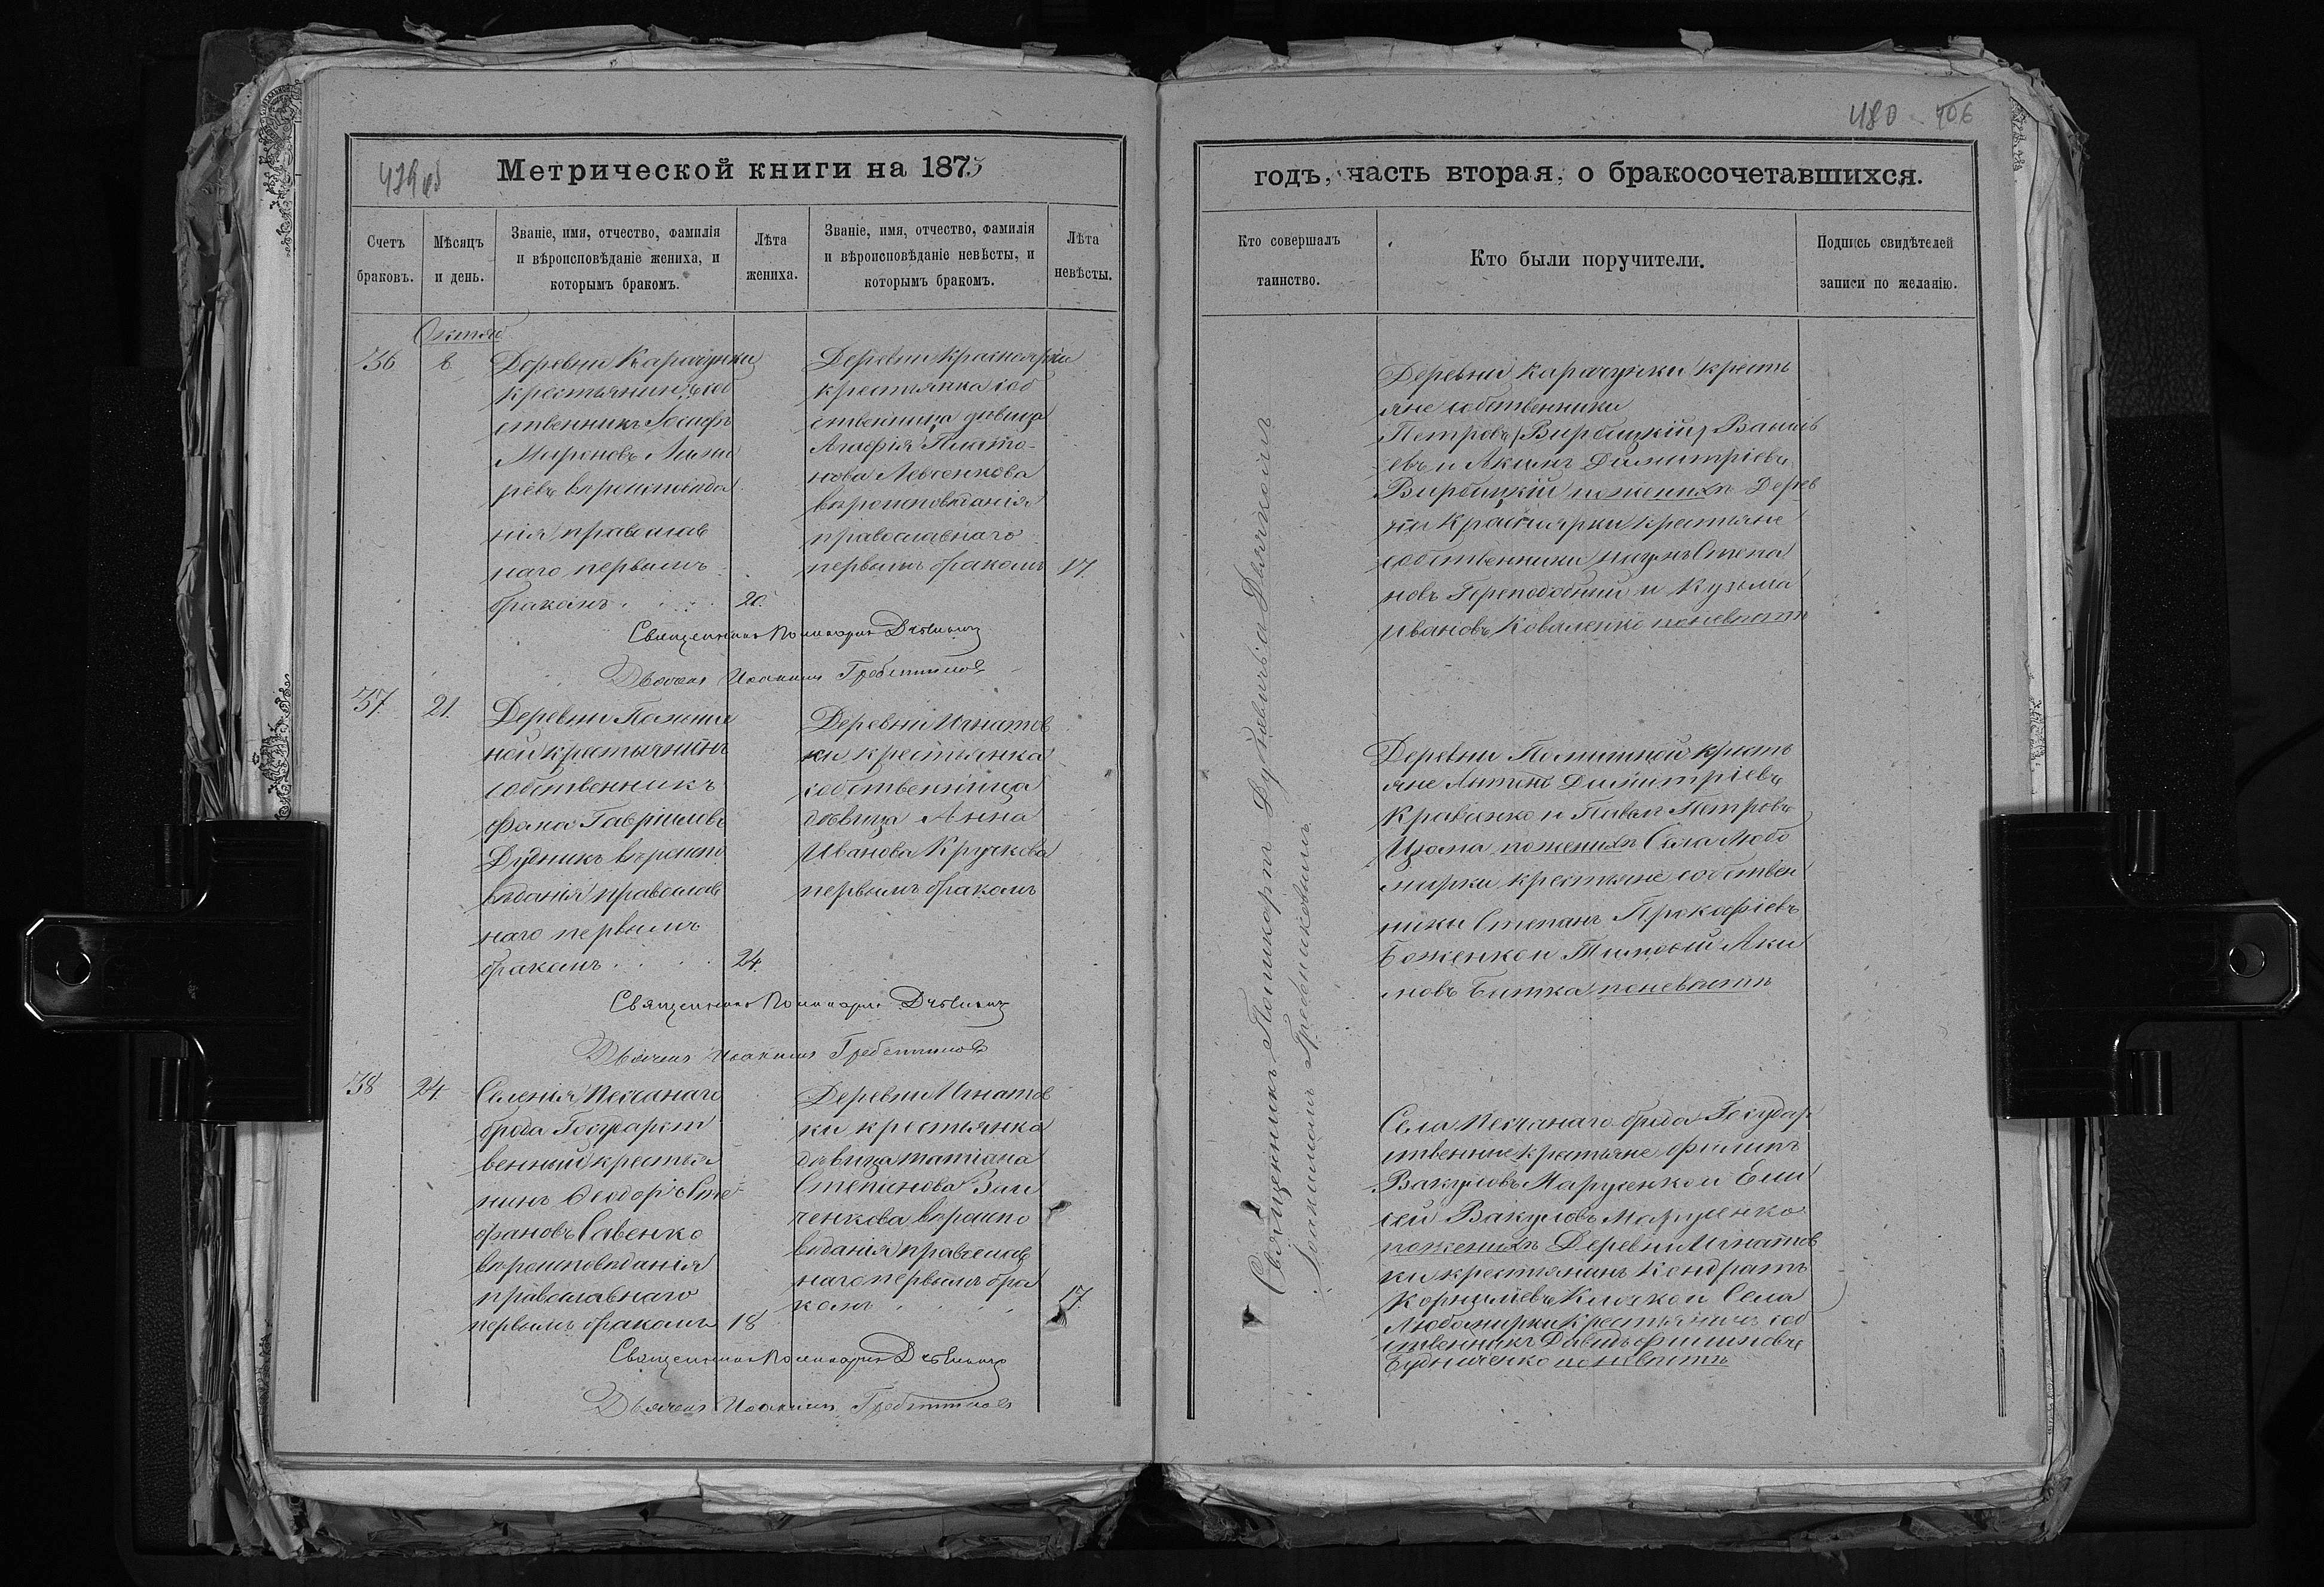 479 об
Метрической книги на 1875
Счетъ браковъ.
Мѣсяцъ и день.
Званіе, имя, отчество, фамилія
и вѣроисповѣданіе жениха, и
которымъ бракомъ.
Лѣта жениха.
Званіе, имя, отчество, фамилія
и вѣроисповѣданіе невѣсты, и
которымъ бракомъ.
Лѣта невѣсты.
Октяб
36
Деревни Карачунки
крестьянинъ соб
ственникъ Іосифъ
Мироновъ
вѣроисповѣда
нія православ
наго первымъ
бракомъ
20.
Деревни Красноярки
крестьянка соб
ственница дѣвица
Агафія Плато-
нова Левченкова
вѣроисповѣданія
православнаго
первымъ бракомъ
17.
Священникъ Поликарпъ
Дьячекъ Иоакимъ
37
21.
Деревни
ной крестьянинъ
собственникъ
Гавріиловъ
Дудникъ вѣроиспо
вѣданія православ
наго первымъ
бракомъ
24.
Деревни Игнатов
ки крестьянка
собственница
дѣвица Анна
Иванова Кручкова
первымъ бракомъ
Священникъ Поликарпъ
Дьячекъ Иоакимъ
38
24
Селенія Песчанаго
брода Государст
венный крестья
нинъ Ѳеодоръ Сте
фановъ Савенко
вѣроисповѣданія
православнаго
первымъ бракомъ
18
Деревни Игнатов
ки крестьянка
дѣвица Татіана
Степанова
ченкова вѣроиспо
вѣданія православ
наго первымъ бра
комъ
17.
Священникъ Поликарпъ
Дьячекъ Иоакимъ
480 406
годъ, часть вторая, о бракосочетавшихся.
Кто совершалъ таинство.
Кто были поручители.
Подпись свидѣтелей
записи по желанію.
Священникъ Поликарпъ
Іоакимомъ
Деревни Карачунки кресть
яне собственники
Петровъ (Вирбицкій)
евъ и Акимъ Димитріевъ
Вирбицкій по женихѣ Дерев
ни Красноярки крестьяне
собственники Наумъ Степа
новъ и Кузьма
Ивановъ Коваленко по невѣстѣ
Деревни кресть
яне Антонъ Димитріевъ
Кравченко и Павелъ Петровъ
по женихѣ Села Любо
мирки крестьяне собствен
ники Степанъ Прокофіевъ
Боженко и Тимофій Аки
мовъ Битка по невѣстѣ
Села Песчанаго брода Государ
ственные крестьяне Филипъ
Вакуловъ Марущенко и Ели
сей Вакуловъ Марущенко
по женихѣ Деревни Игнатов
ки крестьянинъ Кондратъ
Корниліевъ Клочко и Села
Любомирки крестьянинъ соб
ственникъ Давидъ Филиповъ
Будниченко по невѣстѣ